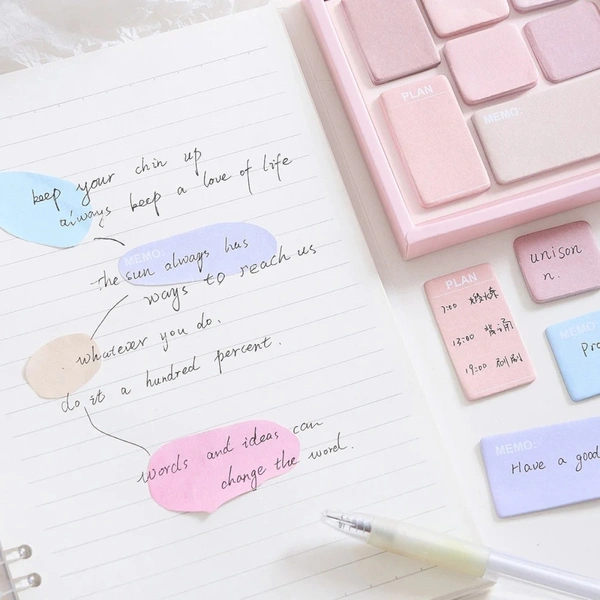 keep your chin up
always keep a love of life
MEMO:
the sun always has
ways to reach us
whatever you do.
do it a hundred percent.
words and ideas can
change the word.
PLAN
MEMO:
PLAN
7:00
13:00 背诵
19:00 刷剧
unison
n.
MEMO:
Pro
MEMO:
Have a good